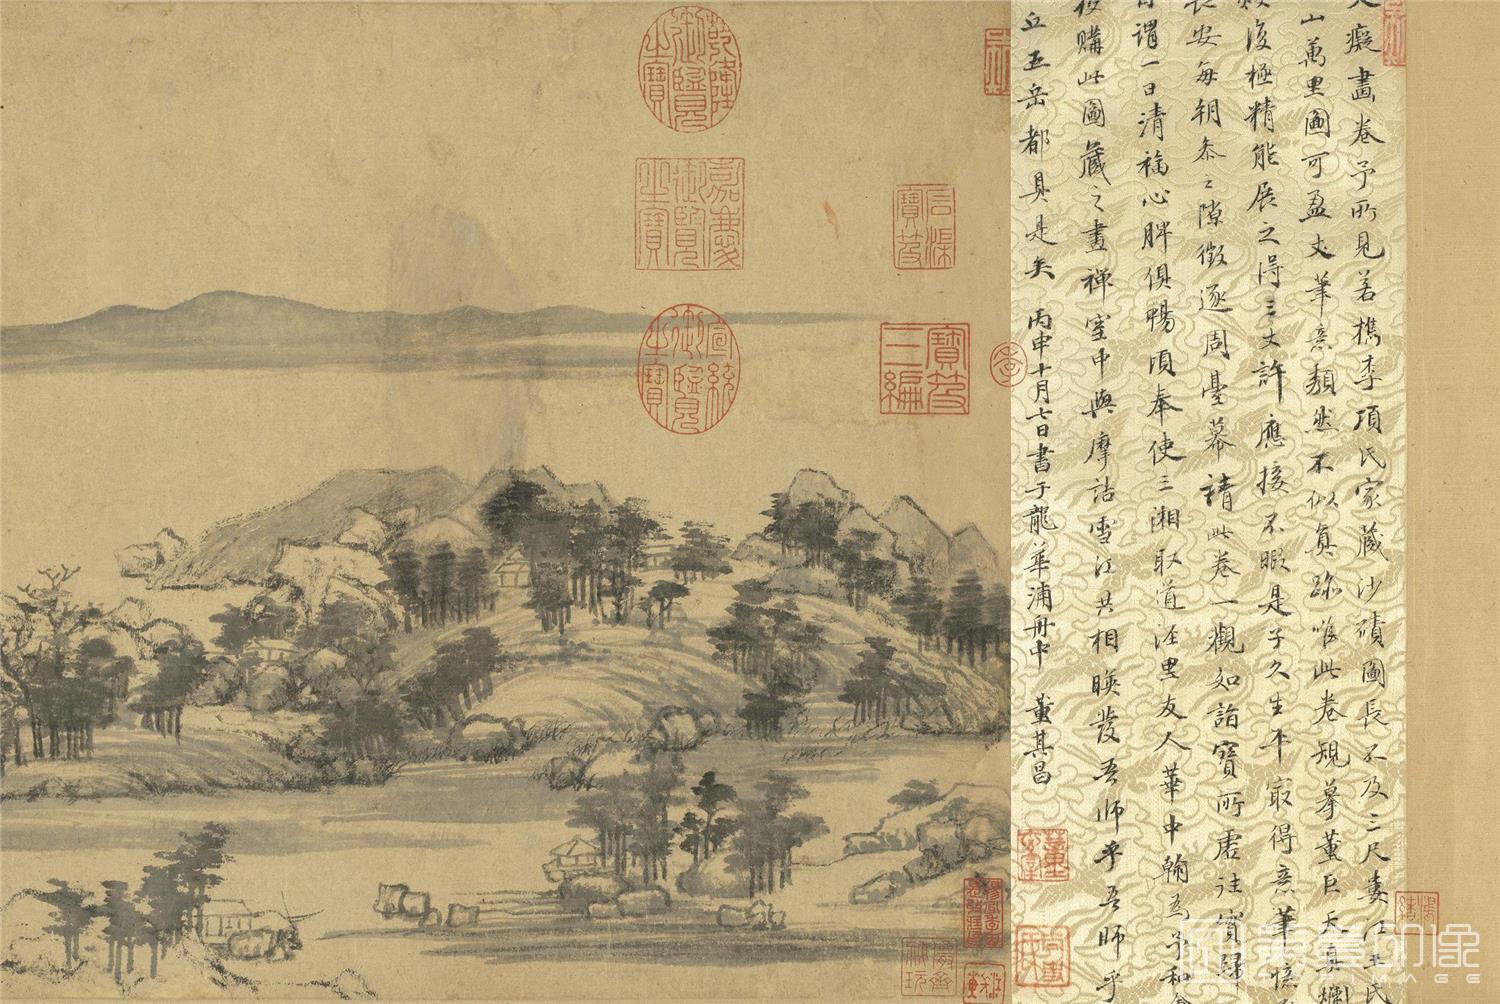 大癡畫卷予所見若檇李項氏家藏沙磧圖長不及三尺婁江王氏
山萬里圖可盈丈筆意頹然不似真跡唯此卷規摹董巨天真爛
復極精能展之得三丈許應接不暇是子久生平最得意筆憶
長安每朝參之隙徵逐周臺幕請此卷一觀如詣寶所虛往實歸
自謂一日清福心脾俱暢頃奉使三湘取道涇里友人華中翰為予和會
獲購此圖藏之畫禪室中與摩詰雪江共相映發吾師乎吾師乎
丘五岳都具是矣 丙申十月七日書于龍華浦舟中 董其昌
石渠寶笈
寶笈三編
乾隆御覽之寶
嘉慶御覽之寶
宣統御覽之寶